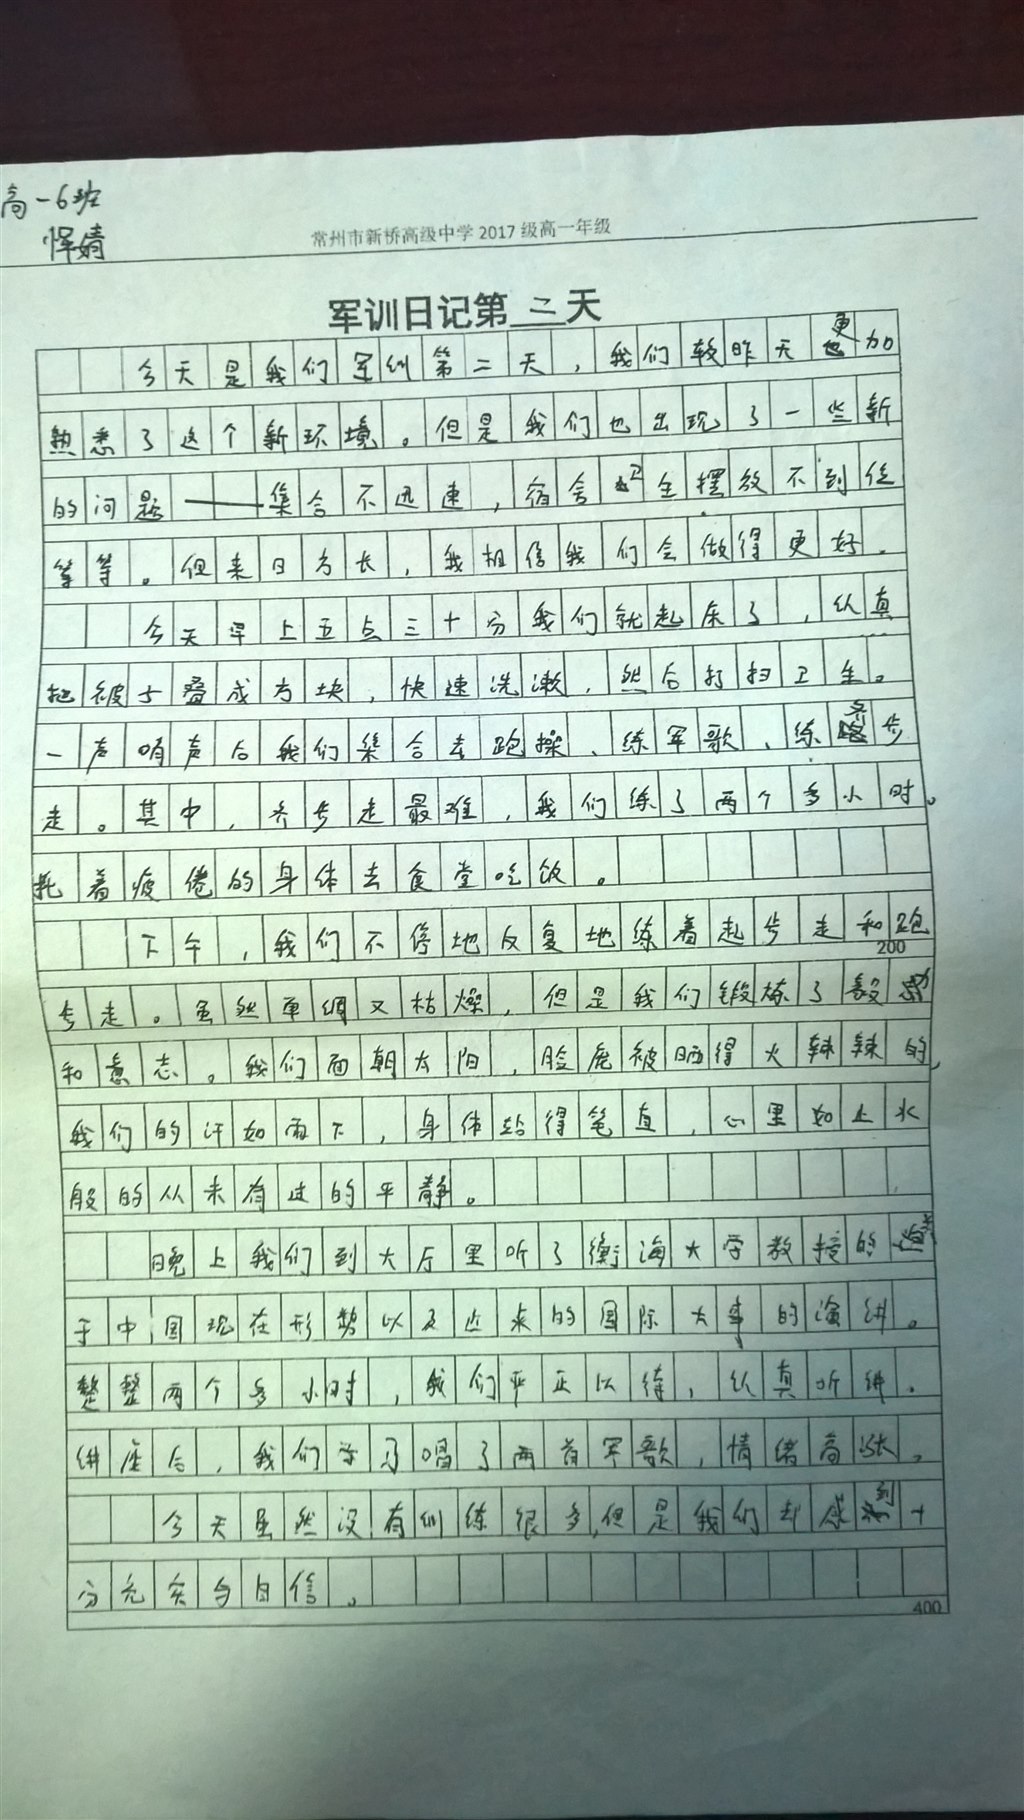 高一6班
恽婧
常州市新桥高级中学 2017 级高一年级
军训日记第二天
今天是我们军训第二天，我们较昨天更加
熟悉了这个新环境。但是我们也出现了一些新
的问题——集合不迅速，宿舍卫生摆放不到位
等等。但来日方长，我相信我们会做得更好。
今天早上五点三十分我们就起床了，认真
把被子叠成方块，快速洗漱，然后打扫卫生。
一声哨声后我们集合去跑操、练军歌、练齐步
走。其中，齐步走最难，我们练了两个多小时。
托着疲倦的身体去食堂吃饭。
下午，我们不停地反复地练着起步走和跑
200
步走。虽然单调又枯燥，但是我们锻炼了毅力
和意志。我们面朝太阳，脸庞被晒得火辣辣的，
我们的汗如雨下，身体站得笔直，心里如止水
般的从未有过的平静。
晚上我们到大厅里听了衡海大学教授的关
于中国现在形势以及近来的国际大事的演讲。
整整两个多小时，我们平正以待，认真听讲。
讲座后，我们学习唱了两首军歌，情绪高涨。
今天虽然没有训练很多，但是我们却感到十
分充实与自信。
400